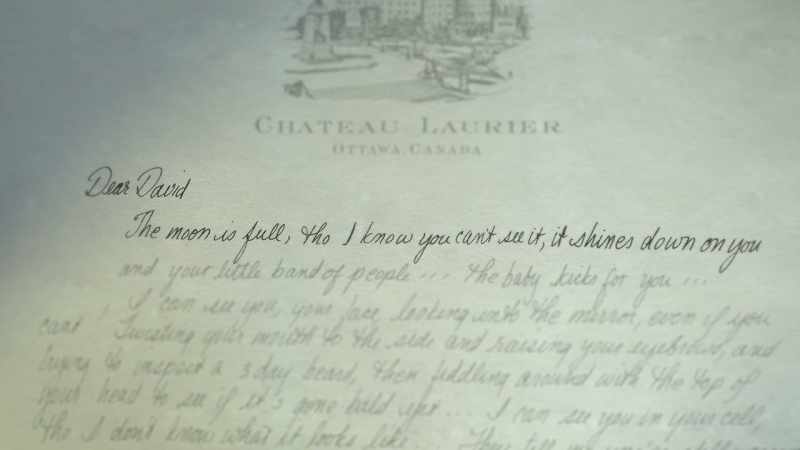 CHATEAU LAURIER
OTTAWA, CANADA
Dear David
The moon is full, tho I know you can't see it, it shines down on you
and your little band of people ... the baby kicks for you ...
I can see you, your face looking into the mirror, even if you
cant. Twisting your mouth to the side and raising your eyebrows, and
trying to inspect a 3 day beard, then fiddling around with the top of
your head to see if it's gone bald yet ... I can see you in your cell,
tho I don't know what it looks like ... They tell me